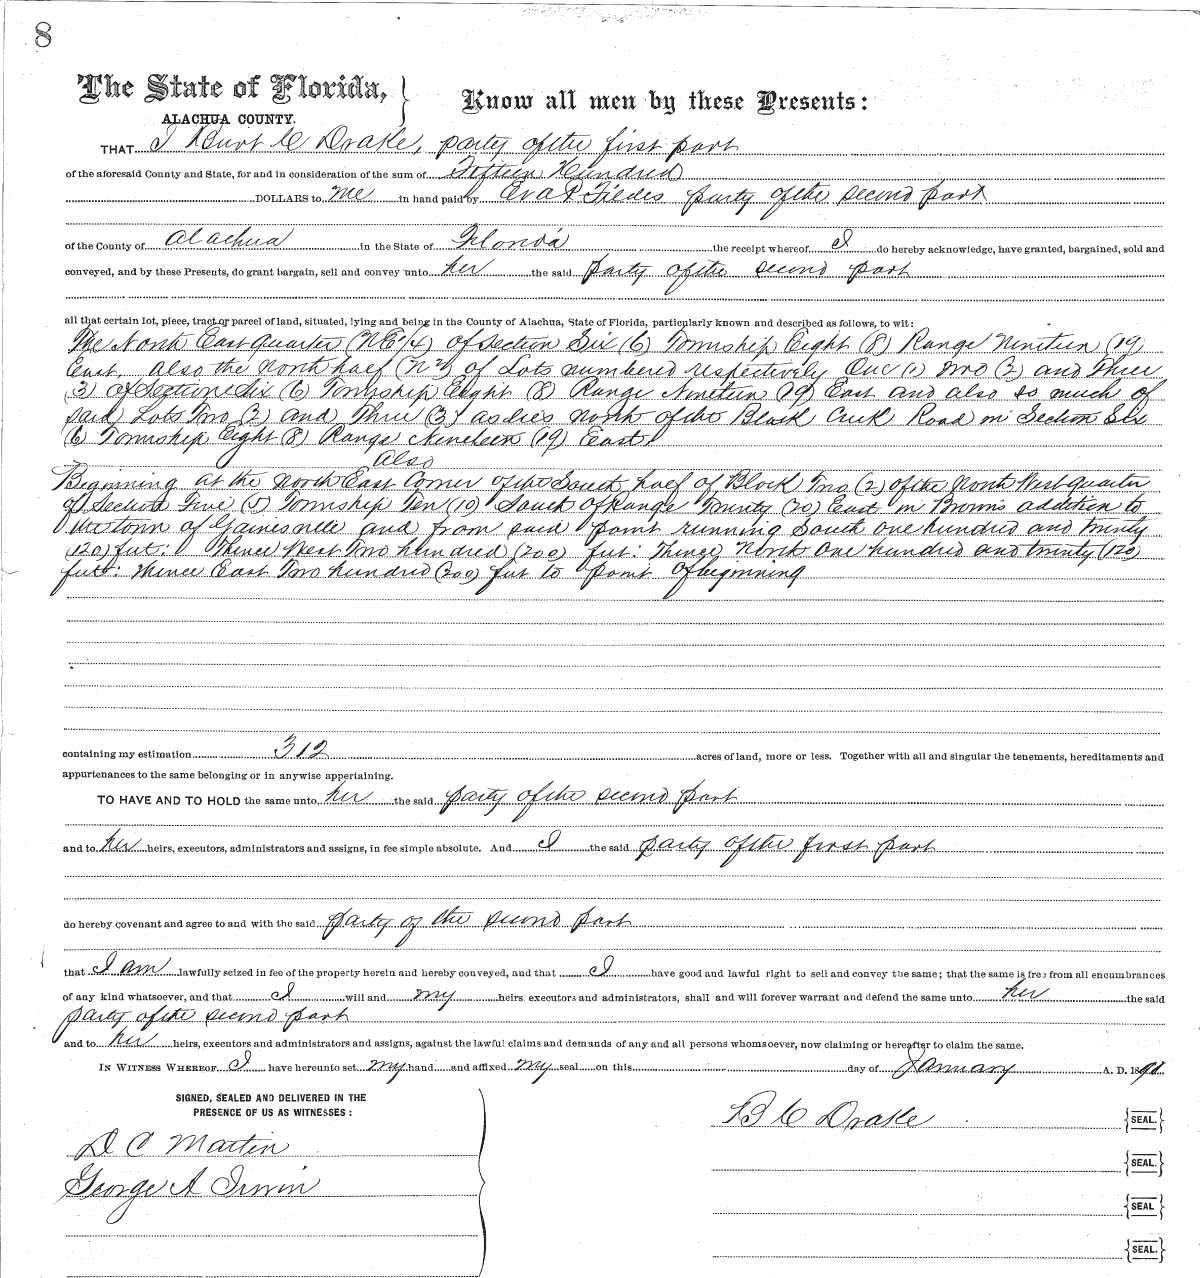 8
The State of Florida,
ALACHUA COUNTY.
Know all men by these Presents:
THAT I Burt C Drake, party of the first part
of the aforesaid County and State, for and in consideration of the sum of Fifteen Hundred
DOLLARS to me in hand paid by Eva P Fildes party of the second part
of the County of Alachua in the State of Florida the receipt whereof I do hereby acknowledge, have granted, bargained, sold and
conveyed, and by these Presents, do grant bargain, sell and convey unto her the said party of the second part
all that certain lot, piece, tract or parcel of land, situated, lying and being in the County of Alachua, State of Florida, particularly known and described as follows, to wit:
The North East quarter (NE 1/4) of Section Six (6) Township Eight (8) Range Nineteen (19)
East, also the North half (N ½) of Lots numbered respectively One (1) Two (2) and Three
(3) of Section Six (6) Township Eight (8) Range Nineteen (19) East and also so much of
said Lots Two (2) and Three (3) as lies north of the Black Creek Road in Section Six
(6) Township Eight (8) Range Nineteen (19) East
Also
Beginning at the North East Corner of the South half of Block Two (2) of the North West quarter
of Section Five (5) Township Ten (10) South of Range Twenty (20) East in Browns addition to
the town of Gainesville and from said point running South one hundred and twenty
(120) feet: Thence West Two hundred (200) feet: Thence North One hundred and twenty (120)
feet: thence East Two hundred (200) feet to point of beginning
containing my estimation 312 acres of land, more or less. Together with all and singular the tenements, hereditaments and
appurtenances to the same belonging or in anywise appertaining.
TO HAVE AND TO HOLD the same unto her the said party of the second part
and to her heirs, executors, administrators and assigns, in fee simple absolute. And I the said party of the first part
do hereby covenant and agree to and with the said party of the second part
that I am lawfully seized in fee of the property herein and hereby conveyed, and that I have good and lawful right to sell and convey the same; that the same is free from all encumbrances
of any kind whatsoever, and that I will and my heirs executors and administrators, shall and will forever warrant and defend the same unto her the said
party of the second part
and to her heirs, executors and administrators and assigns, against the lawful claims and demands of any and all persons whomsoever, now claiming or hereafter to claim the same.
IN WITNESS WHEREOF I have hereunto set my hand and affixed my seal on this day of January A. D. 18
SIGNED, SEALED AND DELIVERED IN THE
PRESENCE OF US AS WITNESSES:
B C Drake SEAL.
D C Martin
SEAL.
George A Irwin
SEAL
SEAL.